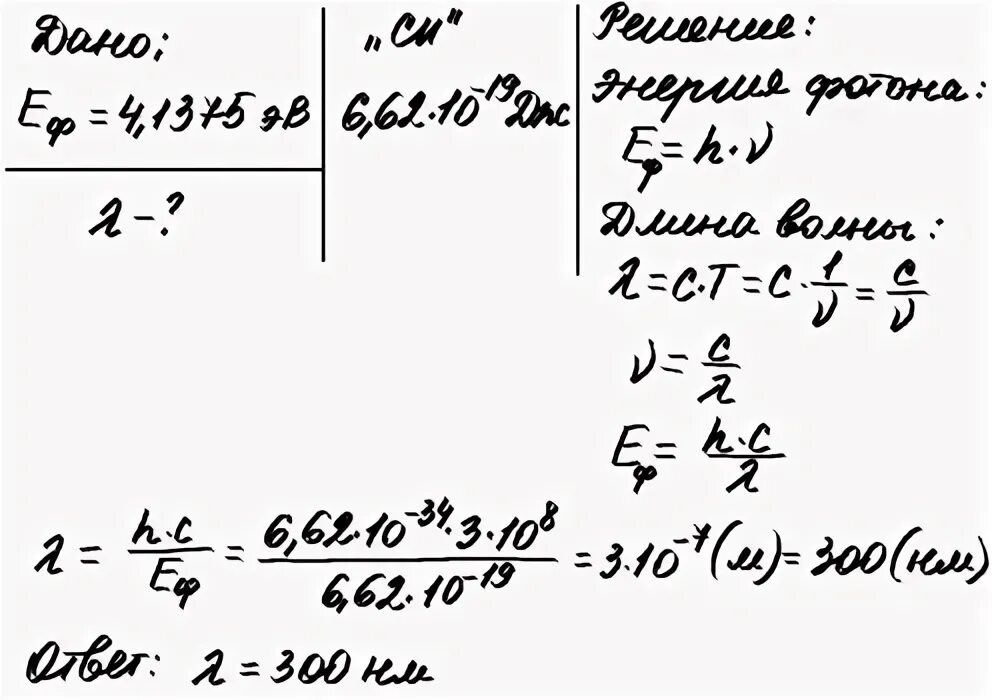 Дано:
Eф = 4,1375 эВ
λ - ?
„СИ"
6,62·10⁻¹⁹ Дж
Решение:
Энергия фотона:
Eф = h·ν
Длина волны:
λ = c·T = c·1/ν = c/ν
ν = c/λ
Eф = h·c/λ
λ = h·c/Eф = 6,62·10⁻³⁴·3·10⁸/6,62·10⁻¹⁹ = 3·10⁻⁷(м) = 300(нм)
Ответ: λ = 300 нм